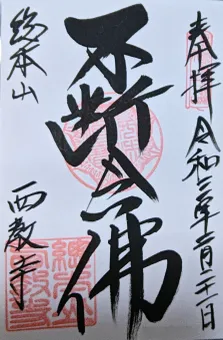 奉拝 令和三年二月二十一日
不断念佛
総本山
西教寺